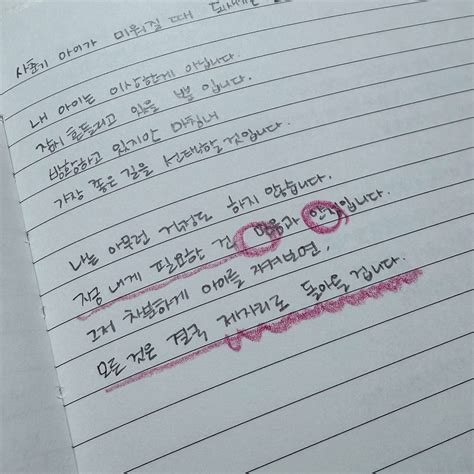 사춘기 아이가 미워질 때 되새기는
내 아이는 이상한게 아닙니다.
잠시 흔들리고 있을 뿐 입니다.
방황하고 있지만 마침내
가장 좋은 길을 선택할 것입니다.
나는 아무런 걱정도 하지 않습니다.
지금 내게 필요한 건 믿음과 인내입니다.
그저 차분하게 아이를 지켜보면,
모든 것은 결국 제자리로 돌아올 겁니다.